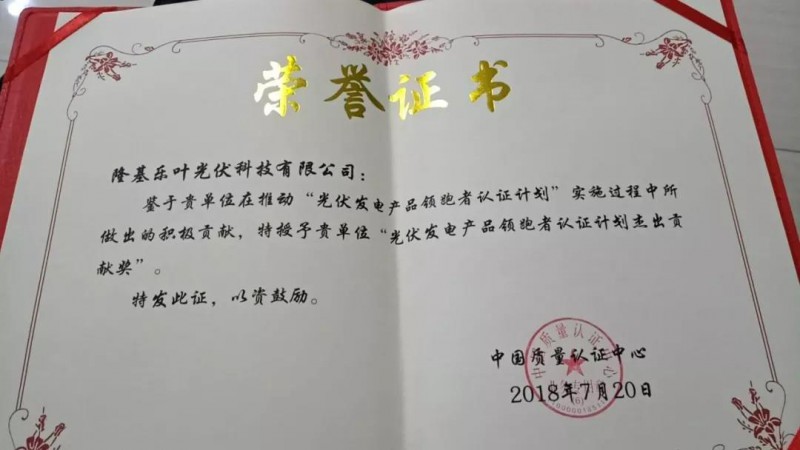 荣誉证书
隆基乐叶光伏科技有限公司：
鉴于贵单位在推动“光伏发电产品领跑者认证计划”实施过程中所
做出的积极贡献，特授予贵单位“光伏发电产品领跑者认证计划杰出贡
献奖”。
特发此证，以资鼓励。
中国质量认证中心
2018年7月20日
中国质量认证中心